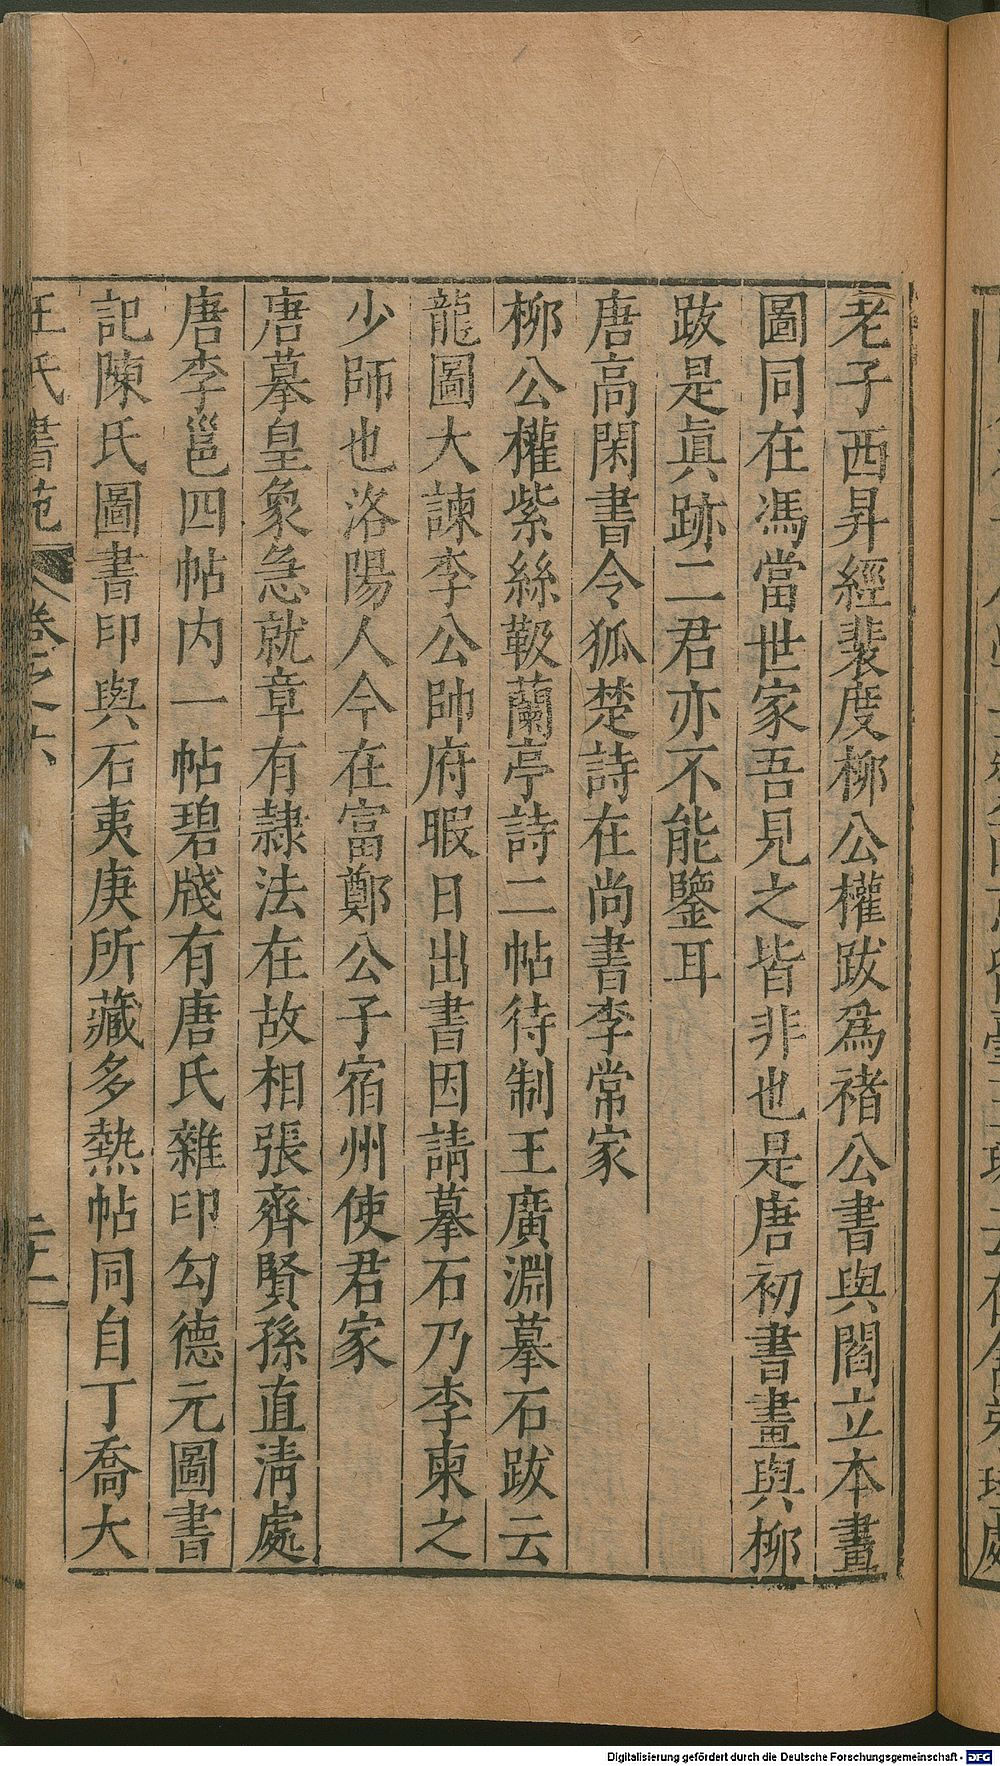 老子西昇經裴度柳公權跋爲褚公書與閻立本畫
圖同在馮當世家吾見之皆非也是唐初書畫與柳
跋是眞跡二君亦不能鑒耳
唐高閑書令狐楚詩在尚書李常家
柳公權紫絲靸蘭亭詩二帖待制王廣淵摹石跋云
龍圖大諫李公帥府暇日出書因請摹石乃李柬之
少師也洛陽人今在富鄭公子宿州使君家
唐摹皇象急就章有隷法在故相張齊賢孫直清處
唐李邕四帖内一帖碧牋有唐氏雜印勾德元圖書
記陳氏圖書印與石夷庚所藏多熱帖同自丁喬大
王氏書苑 卷之六 二十一
Digitalisierung gefördert durch die Deutsche Forschungsgemeinschaft - DFG